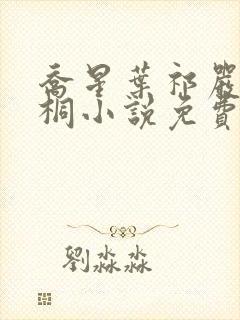 喬星葉祁嚴
桐小說免費
劉淼淼